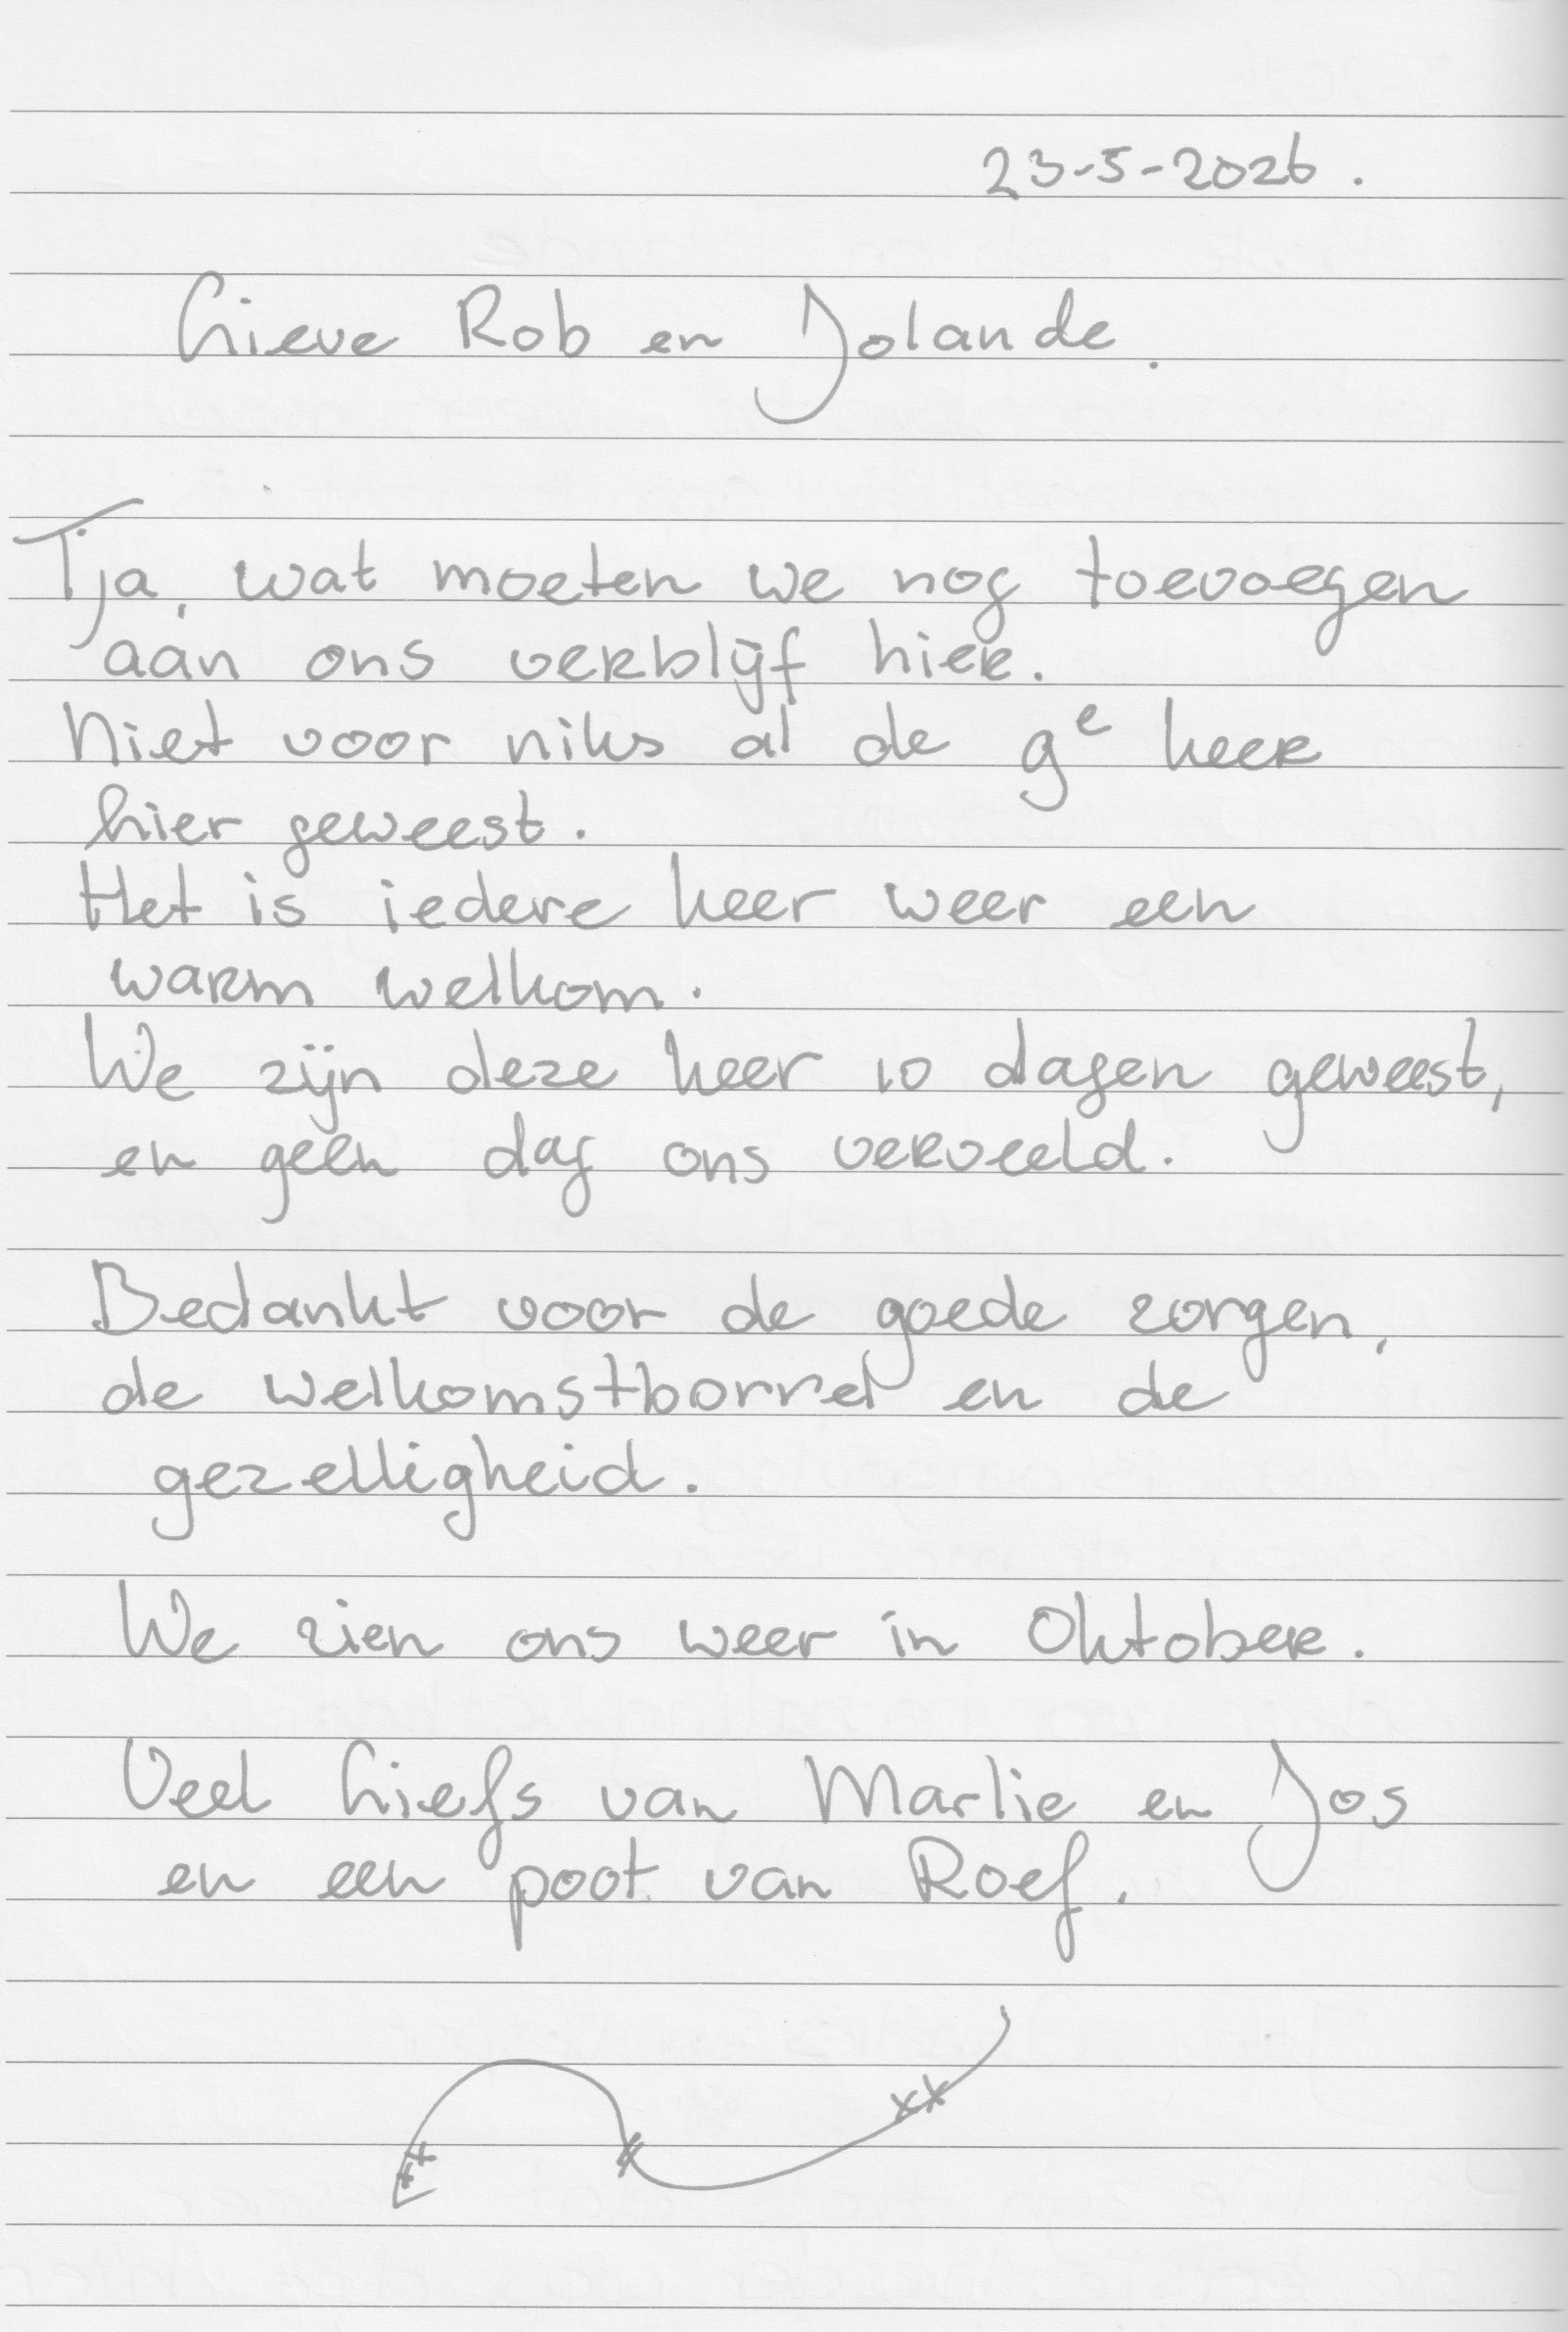 23-5-2026.
Lieve Rob en Jolande.
Tja, wat moeten we nog toevoegen
aan ons verblijf hier.
Niet voor niks al de 9e keer
hier geweest.
Het is iedere keer weer een
warm welkom.
We zijn deze keer 10 dagen geweest,
en geen dag ons verveeld.
Bedankt voor de goede zorgen,
de welkomstborrel en de
gezelligheid.
We zien ons weer in Oktober.
Veel Liefs van Marlie en Jos
en een poot van Roef.